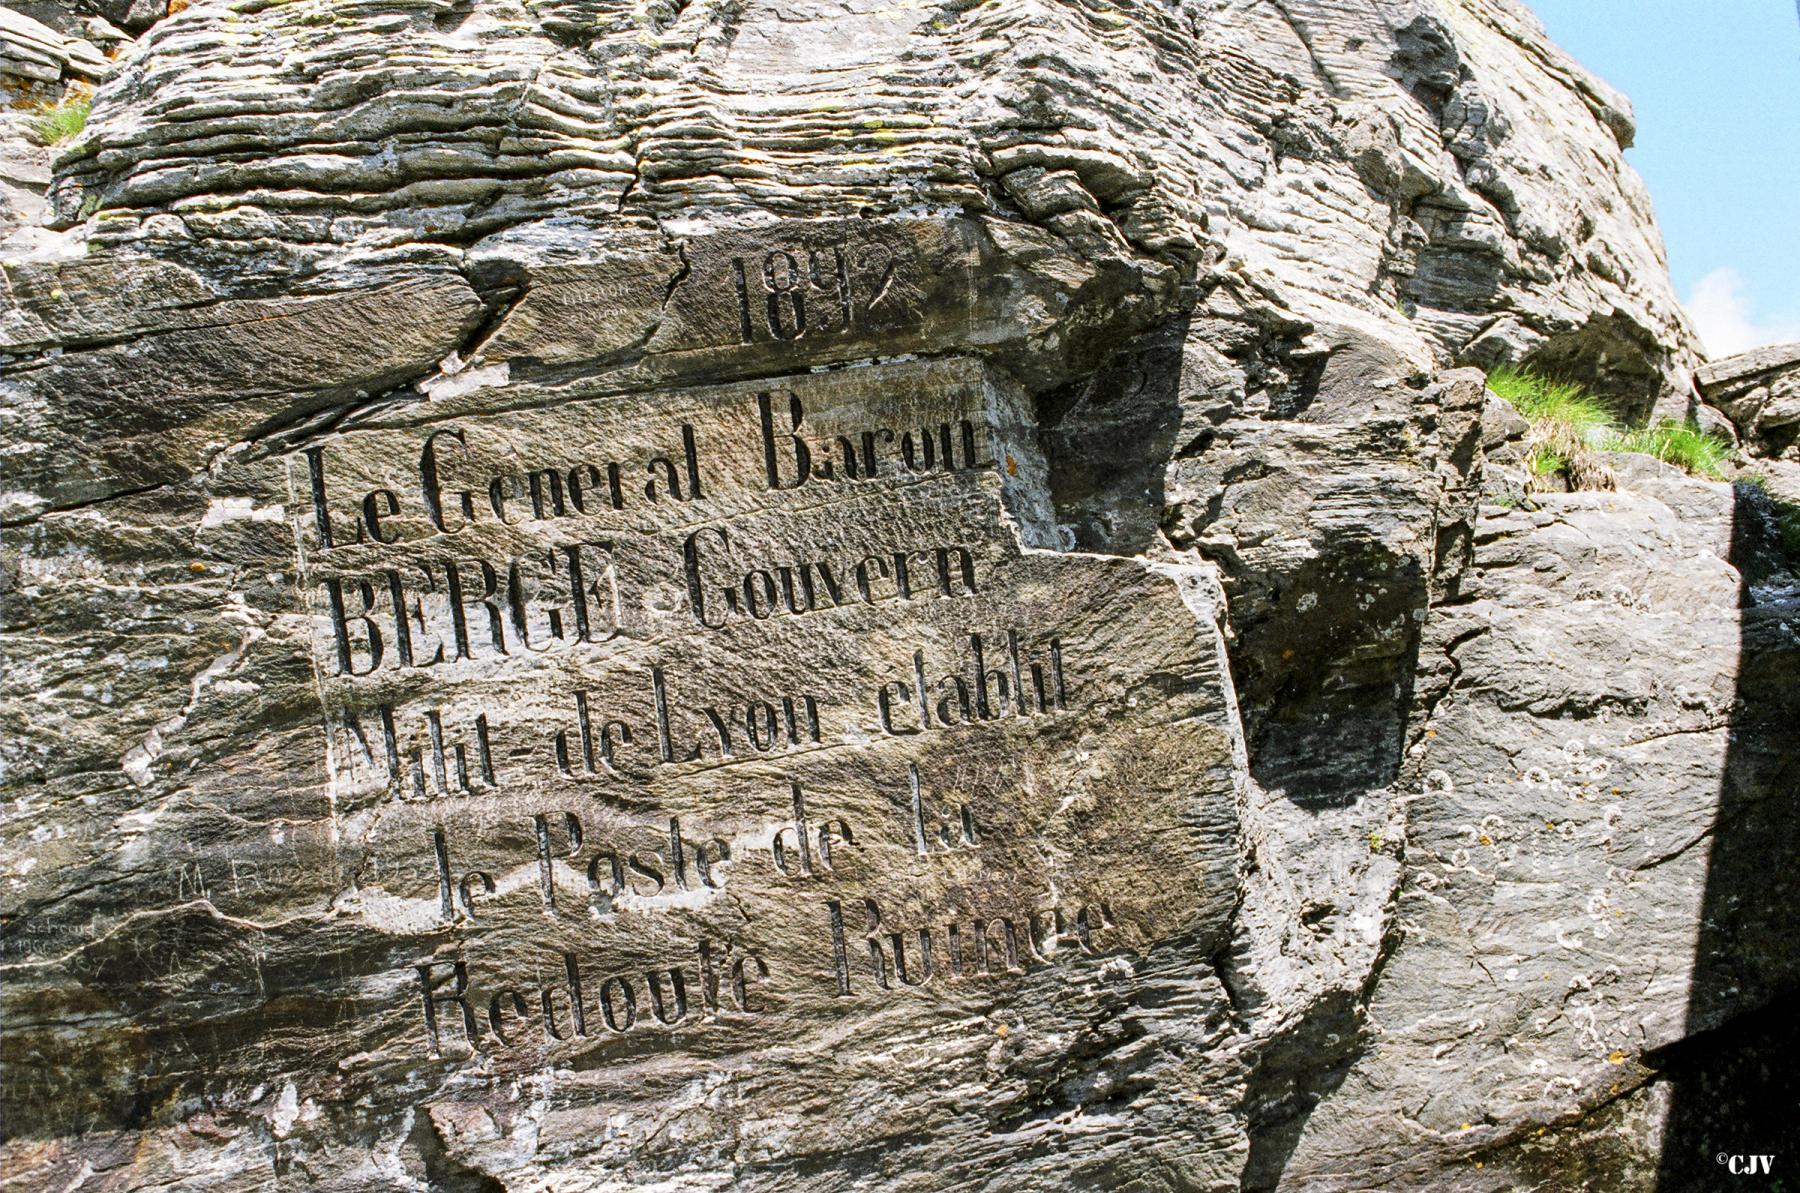 1892
Le Géneral Baron
BERGE Gouvern
Milit-de Lyon établit
le Poste de la
Redoute Ruinée
Scherrd
©CJV